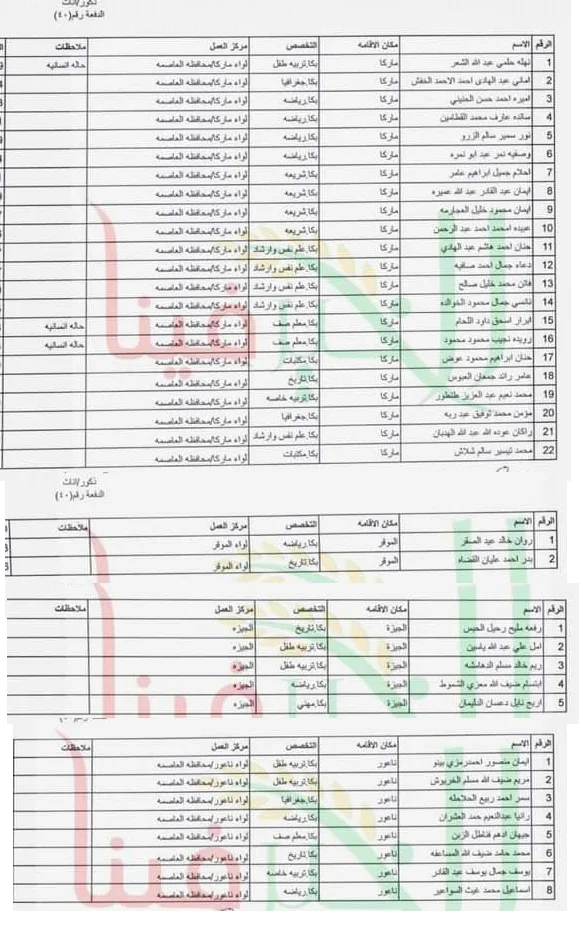 ذكور/اناث
الدفعة رقم (٤٠)
الرقم الاسم مكان الاقامه التخصص مركز العمل ملاحظات
1 نهله حلمي عبد الله الشعر ماركا بكا.تربيه طفل لواء ماركا/محافظه العاصمه حاله انسانيه
2 اماني عبد الهادي احمد الاحمد الخفش ماركا بكا.جغرافيا لواء ماركا/محافظه العاصمه
3 اميره احمد حسن الحنيني ماركا بكا.رياضه لواء ماركا/محافظه العاصمه
4 سائده عارف محمد القطامين ماركا بكا.رياضه لواء ماركا/محافظه العاصمه
5 نور سمير سالم الزرو ماركا بكا.رياضه لواء ماركا/محافظه العاصمه
6 وصفيه نمر عبد ابو نمره ماركا بكا.رياضه لواء ماركا/محافظه العاصمه
7 احلام جميل ابراهيم عامر ماركا بكا.شريعه لواء ماركا/محافظه العاصمه
8 ايمان عبد القادر عبد الله عميره ماركا بكا.شريعه لواء ماركا/محافظه العاصمه
9 ايمان محمود خليل العجارمه ماركا بكا.شريعه لواء ماركا/محافظه العاصمه
10 عبيده امحمد احمد عبد الرحمن ماركا بكا.شريعه لواء ماركا/محافظه العاصمه
11 حنان احمد هاشم عبد الهادي ماركا بكا.علم نفس وارشاد لواء ماركا/محافظه العاصمه
12 دعاء جمال احمد صافيه ماركا بكا.علم نفس وارشاد لواء ماركا/محافظه العاصمه
13 فاتن محمد خليل صالح ماركا بكا.علم نفس وارشاد لواء ماركا/محافظه العاصمه
14 نانسي جمال محمود الخوالده ماركا بكا.علم نفس وارشاد لواء ماركا/محافظه العاصمه
15 ابرار اسحق داود اللحام ماركا بكا.معلم صف لواء ماركا/محافظه العاصمه حاله انسانيه
16 رويده نجيب محمود محمود ماركا بكا.معلم صف لواء ماركا/محافظه العاصمه حاله انسانيه
17 حنان ابراهيم محمود عوض ماركا بكا.مكتبات لواء ماركا/محافظه العاصمه
18 عامر رائد جمعان العبوس ماركا بكا.تاريخ لواء ماركا/محافظه العاصمه
19 محمد نعيم عبد العزيز طنطور ماركا بكا.تربيه خاصه لواء ماركا/محافظه العاصمه
20 مؤمن محمد توفيق عبد ربه ماركا بكا.جغرافيا لواء ماركا/محافظه العاصمه
21 راكان عوده الله عبد الله الهدبان ماركا بكا.علم نفس وارشاد لواء ماركا/محافظه العاصمه
22 محمد تيسير سالم شلاش ماركا بكا.مكتبات لواء ماركا/محافظه العاصمه
ذكور/اناث
الدفعة رقم (٤٠)
الرقم الاسم مكان الاقامه التخصص مركز العمل ملاحظات
1 روان خالد عبد الصقر الموقر بكا.رياضه لواء الموقر
2 بدر احمد عليان القضاه الموقر بكا.تاريخ لواء الموقر
الرقم الاسم مكان الاقامه التخصص مركز العمل ملاحظات
1 رفعه مليح رحيل الحيس الجيزة بكا.تاريخ الجيزه
2 امل علي عبد الله ياسين الجيزة بكا.تربيه طفل الجيزه
3 ريم خالد مسلم الدهامشه الجيزة بكا.تربيه طفل الجيزه
4 ابتسام ضيف الله معزي الشموط الجيزة بكا.رياضه الجيزه
5 اريج نايل دعسان الدليمان الجيزة بكا.مهني الجيزه
الرقم الاسم مكان الاقامه التخصص مركز العمل ملاحظات
1 ايمان منصور احمدرمزي بينو ناعور بكا.تربيه طفل لواء ناعور/محافظه العاصمه
2 مريم ضيف الله مسلم الخربوش ناعور بكا.تربيه طفل لواء ناعور/محافظه العاصمه
3 سمر احمد ربيع الحلاحله ناعور بكا.جغرافيا لواء ناعور/محافظه العاصمه
4 رانيا عبدالنعيم حمد العشران ناعور بكا.رياضه لواء ناعور/محافظه العاصمه
5 جيهان ادهم فناطل الزبن ناعور بكا.معلم صف لواء ناعور/محافظه العاصمه
6 محمد حامد ضيف الله المساعفه ناعور بكا.تاريخ لواء ناعور/محافظه العاصمه
7 يوسف جمال يوسف عبد القادر ناعور بكا.تربيه خاصه لواء ناعور/محافظه العاصمه
8 اسماعيل محمد غيث السواعير ناعور بكا.رياضه لواء ناعور/محافظه العاصمه